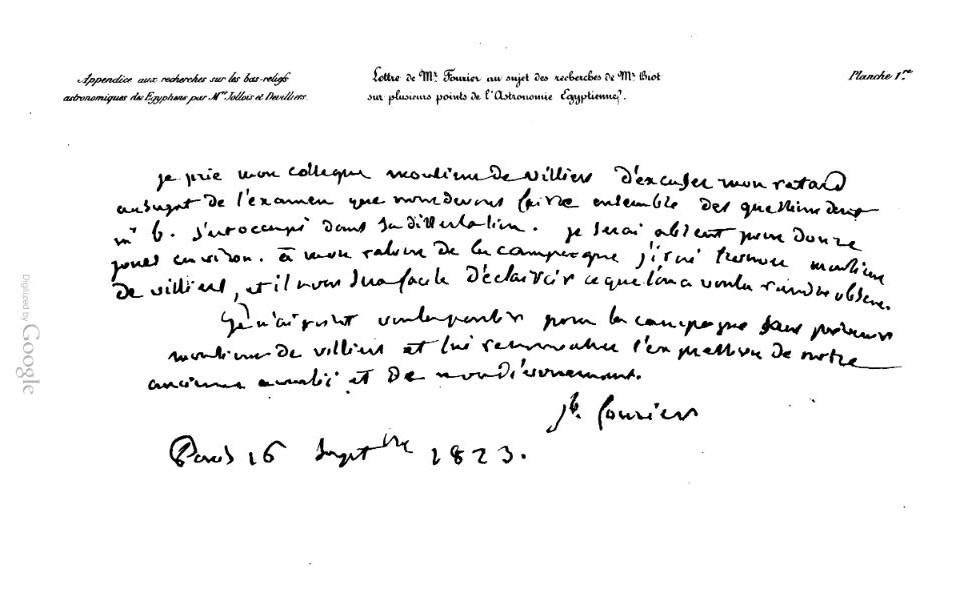 Appendice aux recherches sur les bas-reliefs
astronomiques des Egyptiens par Mrs Jollois et Devilliers.
Lettre de Mr Fourier au sujet des recherches de Mr Biot
sur plusieurs points de l'Astronomie Egyptienne.
Planche 1re
je prie mon collegue monsieur de villiers d'excuser mon retard
au sujet de l'examen que nous devons faire ensemble des questions dont
mr b. s'est occupé dans sa dissertation. je serai absent pour douze
jours environ. à mon retour de la campagne j'irai trouver monsieur
de villiers, et il nous sera facile d'éclaircir ce que l'on a voulu rendre obscur.
Je n'ai point voulu partir pour la campagne sans prévenir
monsieur de villiers et lui renouveller l'expression de notre
ancienne amitié et de mon dévouement.
jh. fourier
Paris 16 Septbre 1823.
Digitized by Google